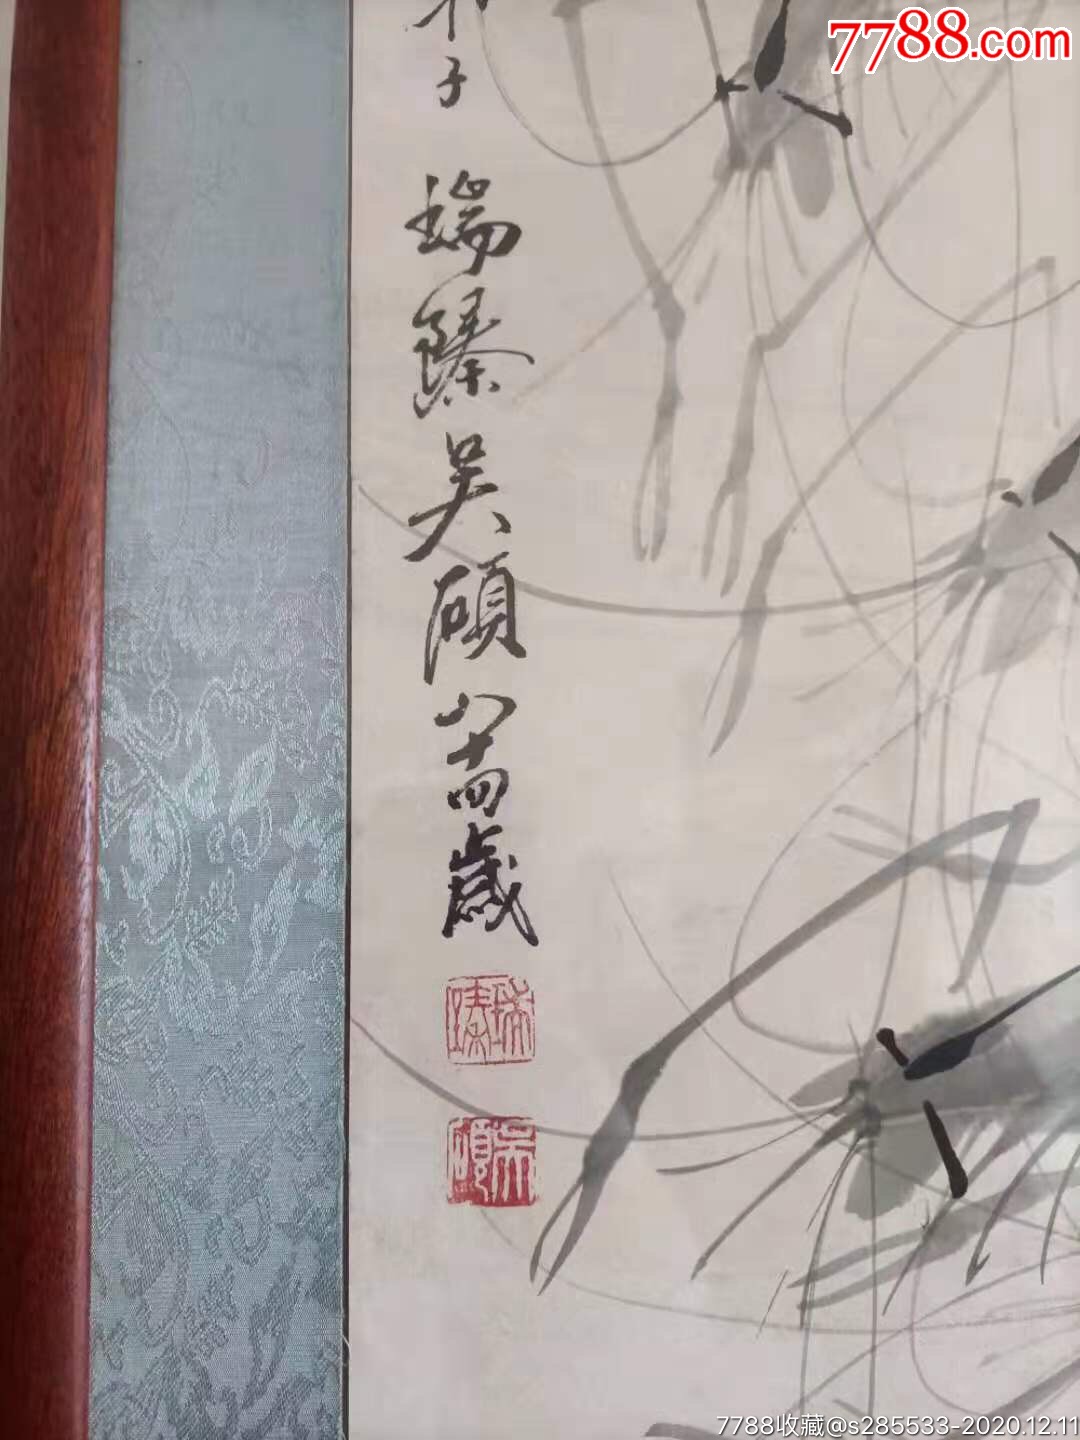 7788.com
子
瑞臻吴頎八十四歲
瑞臻
吴頎
7788收藏@s285533-2020.12.11